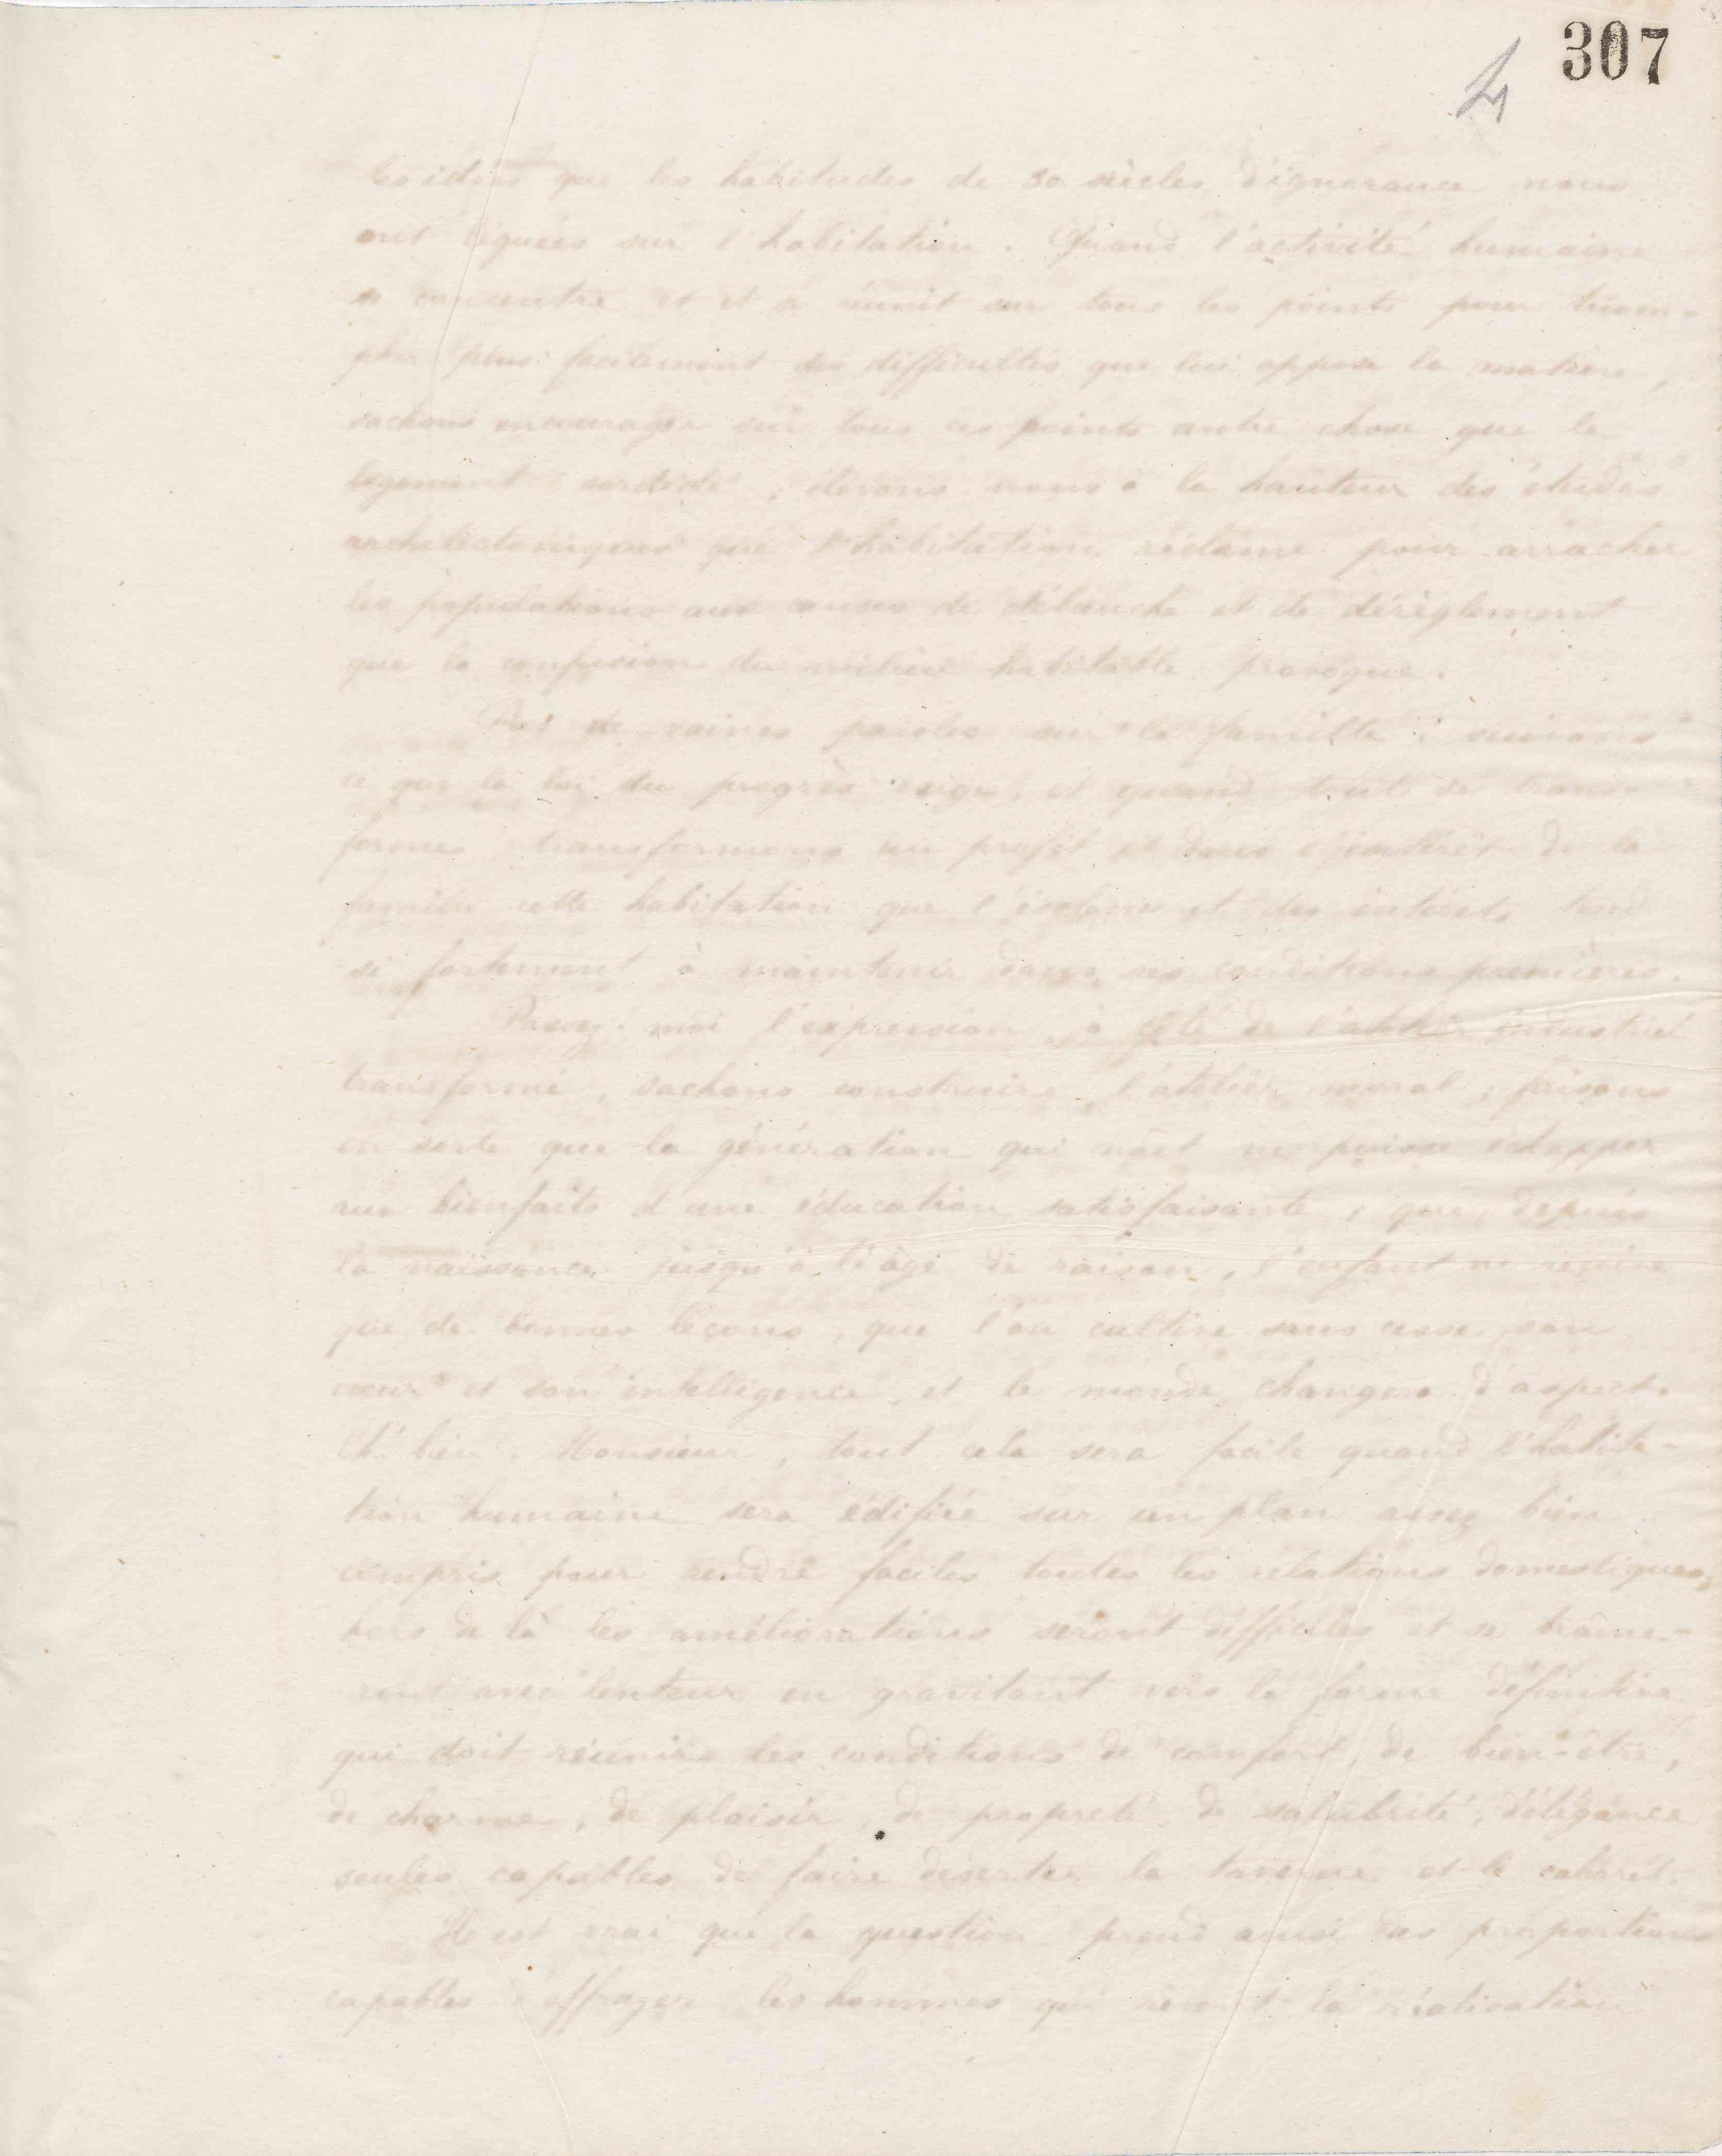 307
4
les idées que les habitudes de 30 siècles d'ignorance nous
ont léguées sur l'habitation. Quand l'activité humaine
se concentre et et se réunit sur tous les points pour triom-
pher plus facilement des difficultés que lui oppose la matière,
sachons encourager sur tous ces points autre chose que le
logement sordide, élevons nous à la hauteur des études
architectoniques que l'habitation réclame pour arracher
les populations aux causes de débauche et de dérèglement
que la confusion du milieu habitable provoque.
Pas de vaines paroles sur la famille : suivons
ce que la loi du progrès exige, et quand tout se trans-
forme, transformons au profit et dans l'intérêt de la
famille cette habitation que l'égoïsme et des intérêts tend
si fortement à maintenir dans ses conditions premières.
Passez-moi l'expression, à côté de l'atelier industriel
transformé, sachons construire l'atelier moral ; faisons
en sorte que la génération qui naît ne puisse échapper
aux bienfaits d'une éducation satisfaisante, que, depuis
la naissance jusqu'à l'âge de raison, l'enfant ne reçoive
que de bonnes leçons, que l'on cultive sans cesse son
cœur et son intelligence, et le monde changera d'aspect.
Eh bien, Monsieur, tout cela sera facile quand l'habita-
tion humaine sera édifiée sur un plan assez bien
compris pour rendre faciles toutes les relations domestiques,
hors de là les améliorations seront difficiles et se traîne-
ront avec lenteur en gravitant vers la forme définitive
qui doit réunir les conditions de comfort, de bien-être,
de charme, de plaisir, de propreté, de salubrité, d'élégance
seules capables de faire déserter la taverne et le cabaret.
Il est vrai que la question prend ainsi des proportions
capables d'effrayer les hommes qui rêvent la réalisation